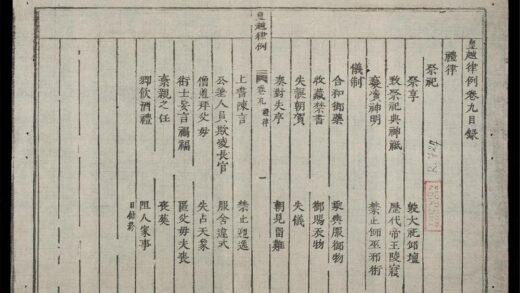 皇越律例卷九目錄
禮律
祭祀
祭享　毀大祀邱壇
致祭祀典神祇　歷代帝王陵寢
褻瀆神明　禁止師巫邪術
儀制
合和御藥　乘輿服御物
收藏禁書　御賜衣物
失誤朝賀　失儀
奏對失序　朝見留難
皇越律例　卷九　禮律　一
上書陳言　禁止迎送
公差人員欺凌長官　服舍違式
僧道拜父母　失占天象
術士妄言禍福　匿父母夫喪
棄親之任　喪葬
鄉飲酒禮　阻人家事
目錄終